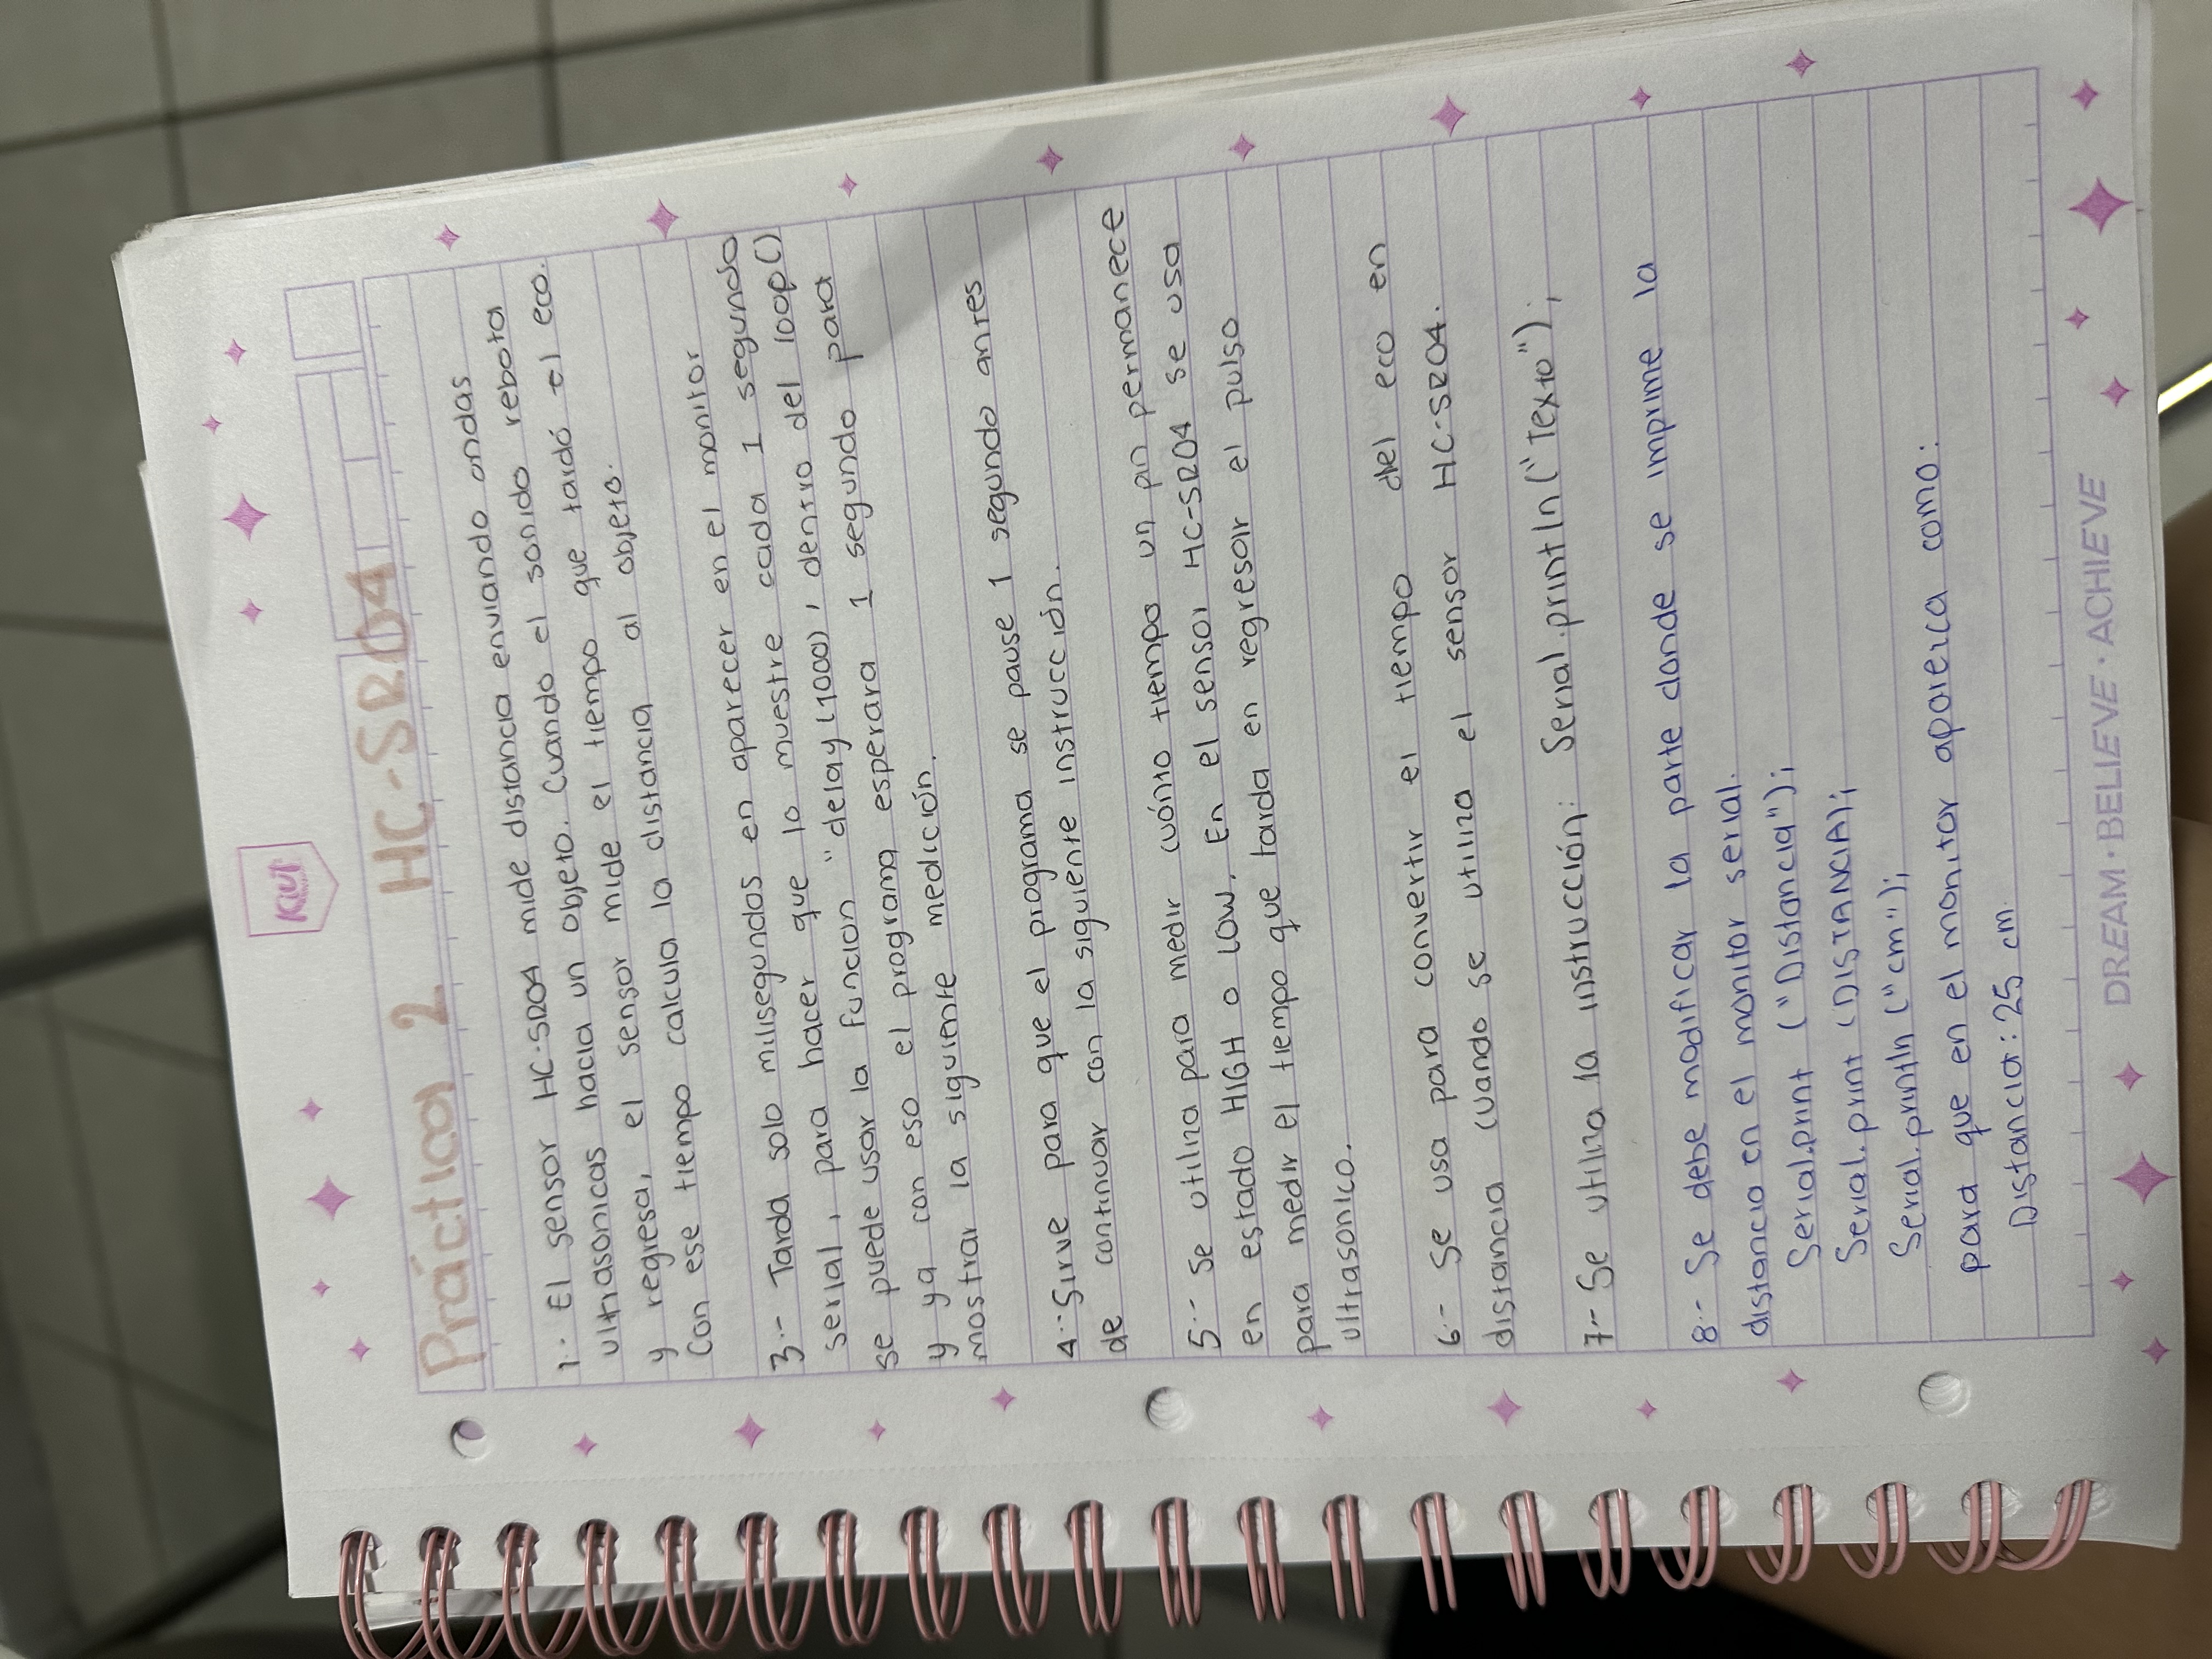 KIUT
Práctica 2 HC-SR04
1.- El sensor HC-SR04 mide distancia enviando ondas
ultrasonicas hacia un objeto. Cuando el sonido rebota
y regresa, el sensor mide el tiempo que tardó el eco.
Con ese tiempo calcula la distancia al objeto.
3.- Tarda solo milisegundos en aparecer en el monitor
serial, para hacer que lo muestre cada 1 segundo
se puede usar la función "delay(1000), dentro del loop()
y ya con eso el programa esperara 1 segundo para
mostrar la siguiente medición.
4.- Sirve para que el programa se pause 1 segundo antes
de continuar con la siguiente instrucción.
5.- Se utiliza para medir cuánto tiempo un pin permanece
en estado HIGH o LOW. En el sensor HC-SR04 se usa
para medir el tiempo que tarda en regresar el pulso
ultrasonico.
6.- Se usa para convertir el tiempo del eco en
distancia cuando se utiliza el sensor HC-SR04.
7.- Se utiliza la instrucción: Serial.println("Texto");
8.- Se debe modificar la parte donde se imprime la
distancia en el monitor serial.
Serial.print ("Distancia");
Serial.print (DISTANCIA);
Serial.println ("cm");
para que en el monitor aparezca como:
Distancia: 25 cm.
DREAM · BELIEVE · ACHIEVE